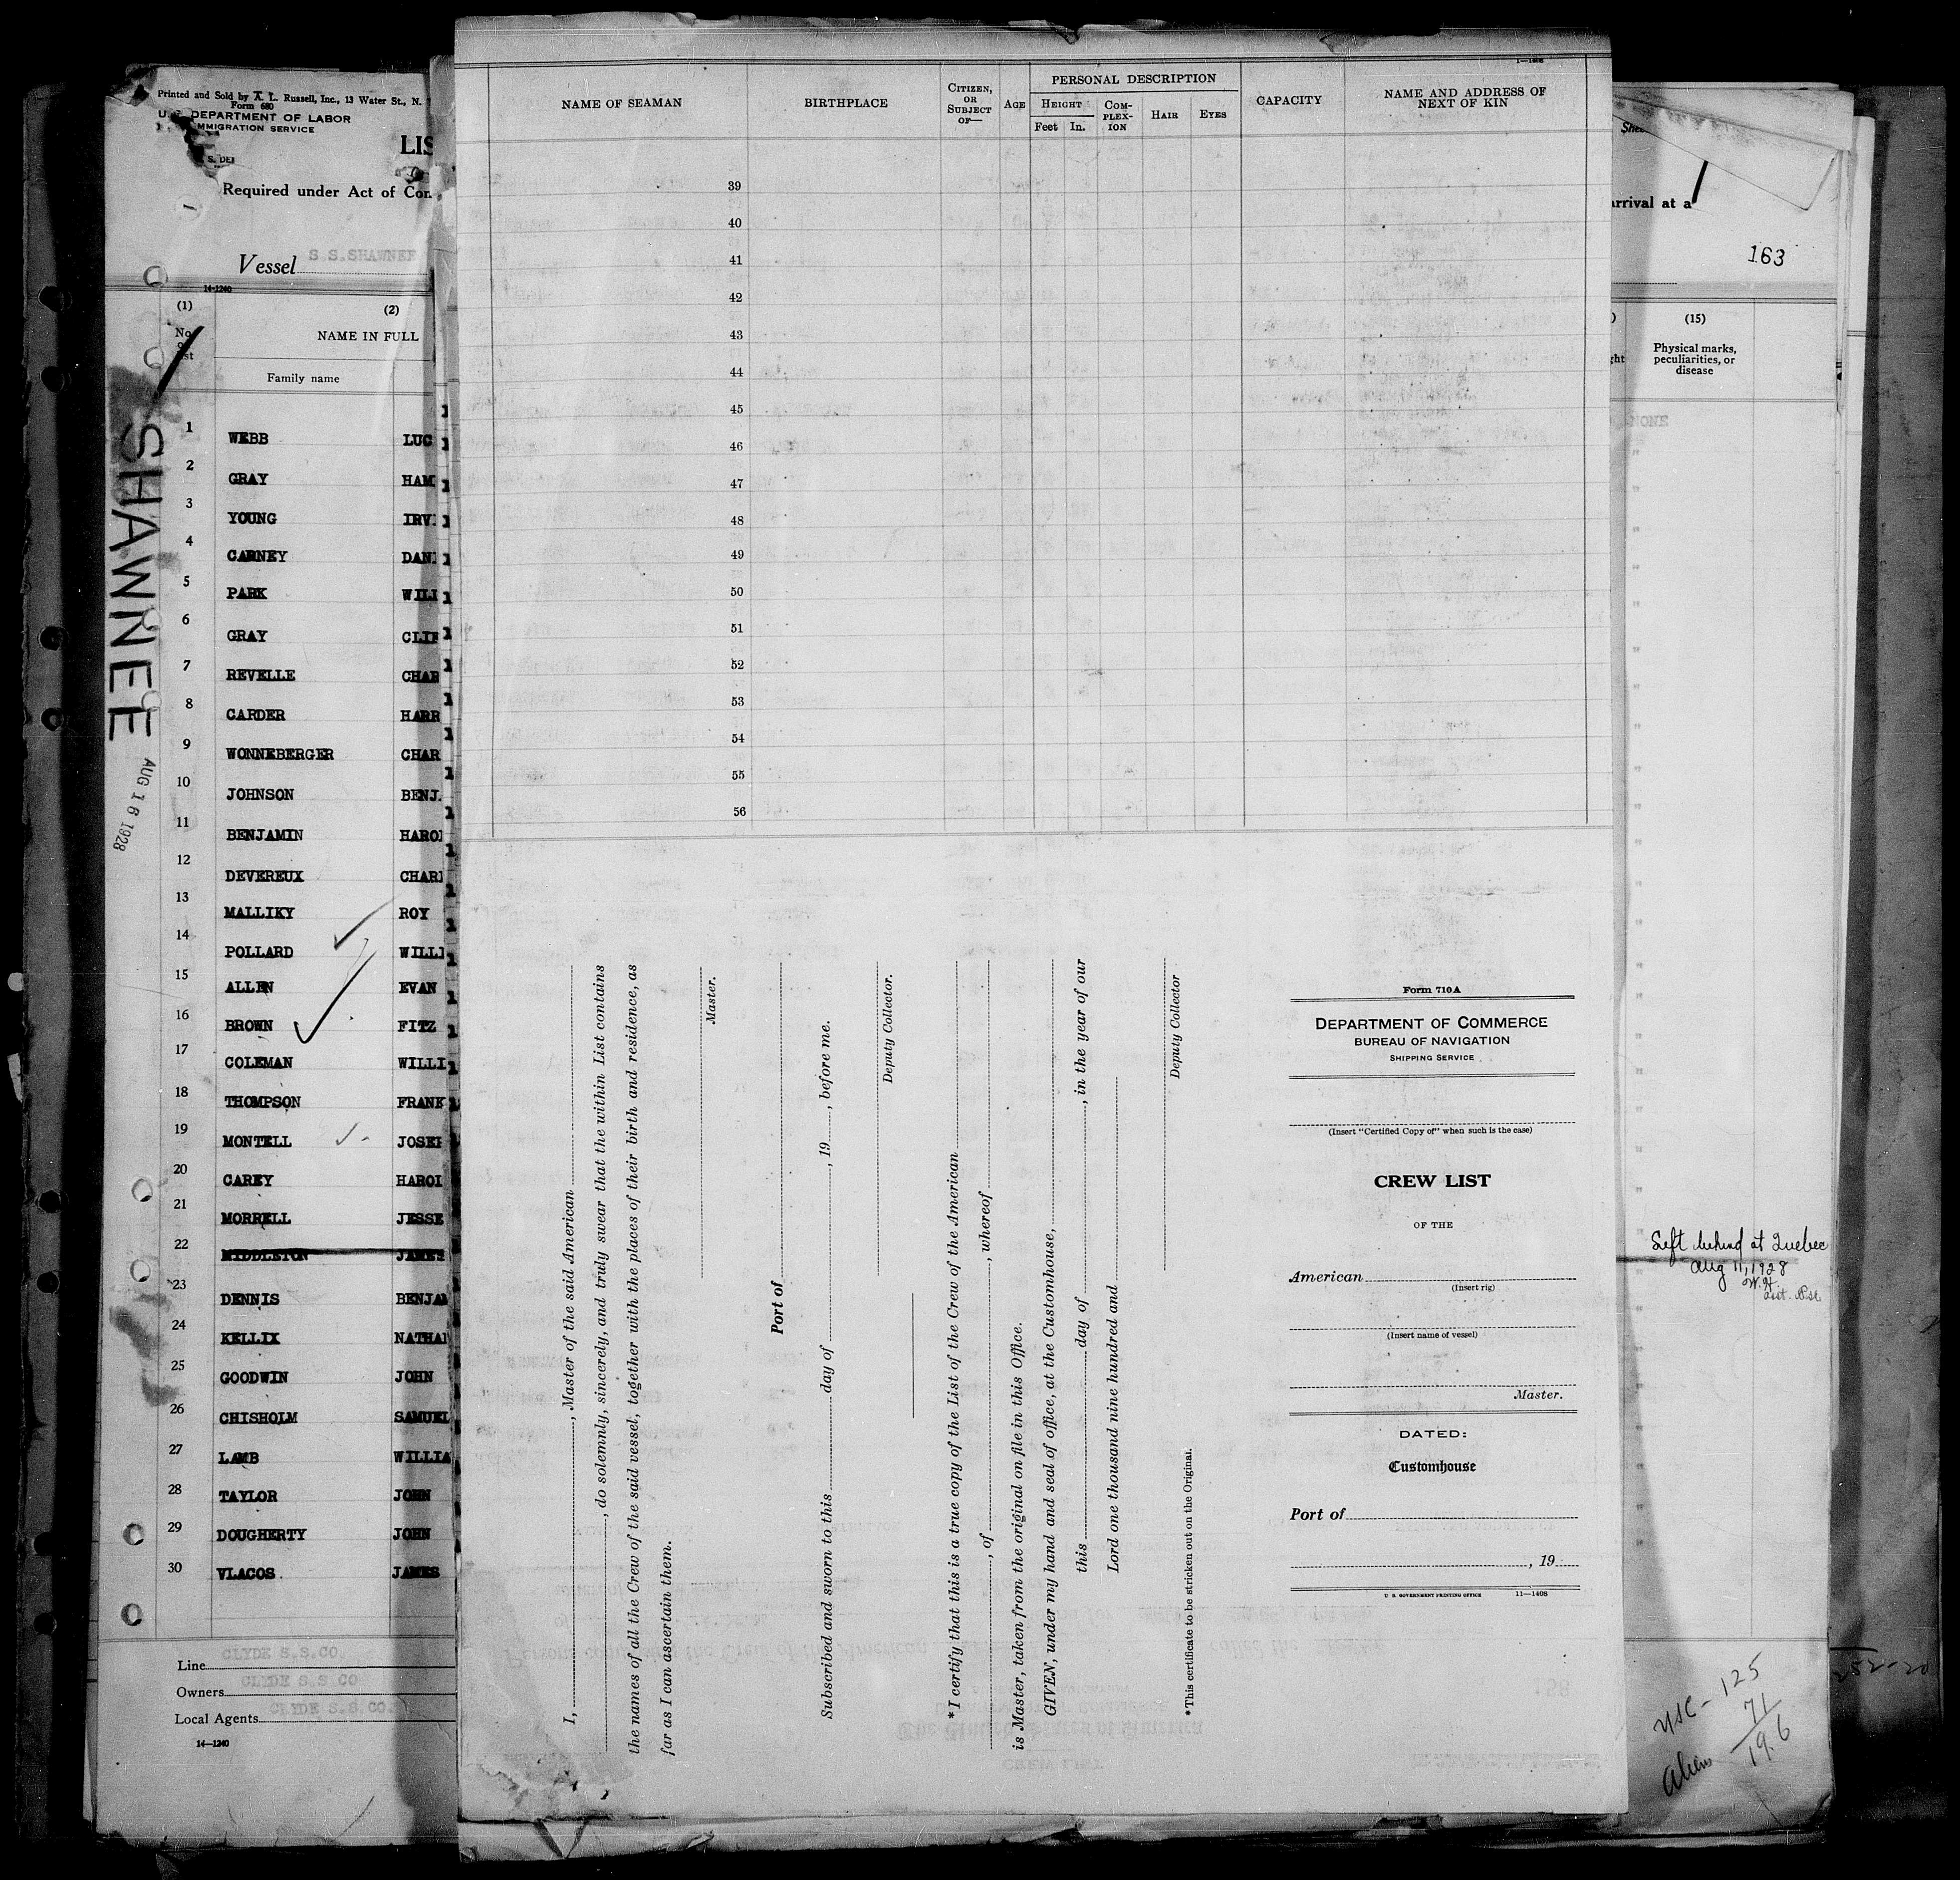 Printed and Sold by A. L. Russell, Inc., 13 Water St., N.
Form 680
U. S. DEPARTMENT OF LABOR
IMMIGRATION SERVICE
S. DE
LIS
Required under Act of Con
Vessel S.S.SHAWNEE
14-1240
(1) (2)
No
NAME IN FULL
Family name
SHAWNEE
AUG 16 1928
1 WEBB LUC
2 GRAY HAM
3 YOUNG IRV
4 CARNEY DAN
5 PARK WILL
6 GRAY CLIF
7 REVELLE CHAR
8 CARDER HARR
9 WONNEBERGER CHAR
10 JOHNSON BENJ.
11 BENJAMIN HAROL
12 DEVEREUX CHARL
13 MALLIKY ROY
14 POLLARD WILLI
15 ALLEN EVAN
16 BROWN FITZ
17 COLEMAN WILLI
18 THOMPSON FRANK
19 MONTELL JOSEP
20 CAREY HAROL
21 MORRELL JESSE
22 MIDDLETON JAMES
23 DENNIS BENJAM
24 KELLIX NATHAN
25 GOODWIN JOHN
26 CHISHOLM SAMUEL
27 LAMB WILLIA
28 TAYLOR JOHN
29 DOUGHERTY JOHN
30 VLACOS JAMES
Line CLYDE S.S.CO.
Owners CLYDE S.S CO
Local Agents CLYDE S.S.CO.
14—1240
NAME OF SEAMAN
BIRTHPLACE
CITIZEN, OR SUBJECT OF—
AGE
PERSONAL DESCRIPTION
HEIGHT
Feet In.
COM-PLEX-ION
HAIR
EYES
CAPACITY
NAME AND ADDRESS OF NEXT OF KIN
39
40
41
42
43
44
45
46
47
48
49
50
51
52
53
54
55
56
I, , Master of the said American
, do solemnly, sincerely, and truly swear that the within List contains
the names of all the Crew of the said vessel, together with the places of their birth and residence, as
far as I can ascertain them.
Master.
Port of
Subscribed and sworn to this day of , 19 , before me.
Deputy Collector.
*I certify that this is a true copy of the List of the Crew of the American
, of , whereof
is Master, taken from the original on file in this Office.
GIVEN, under my hand and seal of office, at the Customhouse,
this day of , in the year of our
Lord one thousand nine hundred and
Deputy Collector
*This certificate to be stricken out on the Original.
Form 710A
DEPARTMENT OF COMMERCE
BUREAU OF NAVIGATION
SHIPPING SERVICE
(Insert "Certified Copy of" when such is the case)
CREW LIST
OF THE
American
(Insert rig)
(Insert name of vessel)
Master.
DATED:
Customhouse
Port of
, 19
U. S. GOVERNMENT PRINTING OFFICE 11—1408
Shee
arrival at a
163
(15)
ght
Physical marks, peculiarities, or disease
NONE
Left behind at Quebec
Aug 11, 1928
W.H.
USC - 125
71
Aliens 196